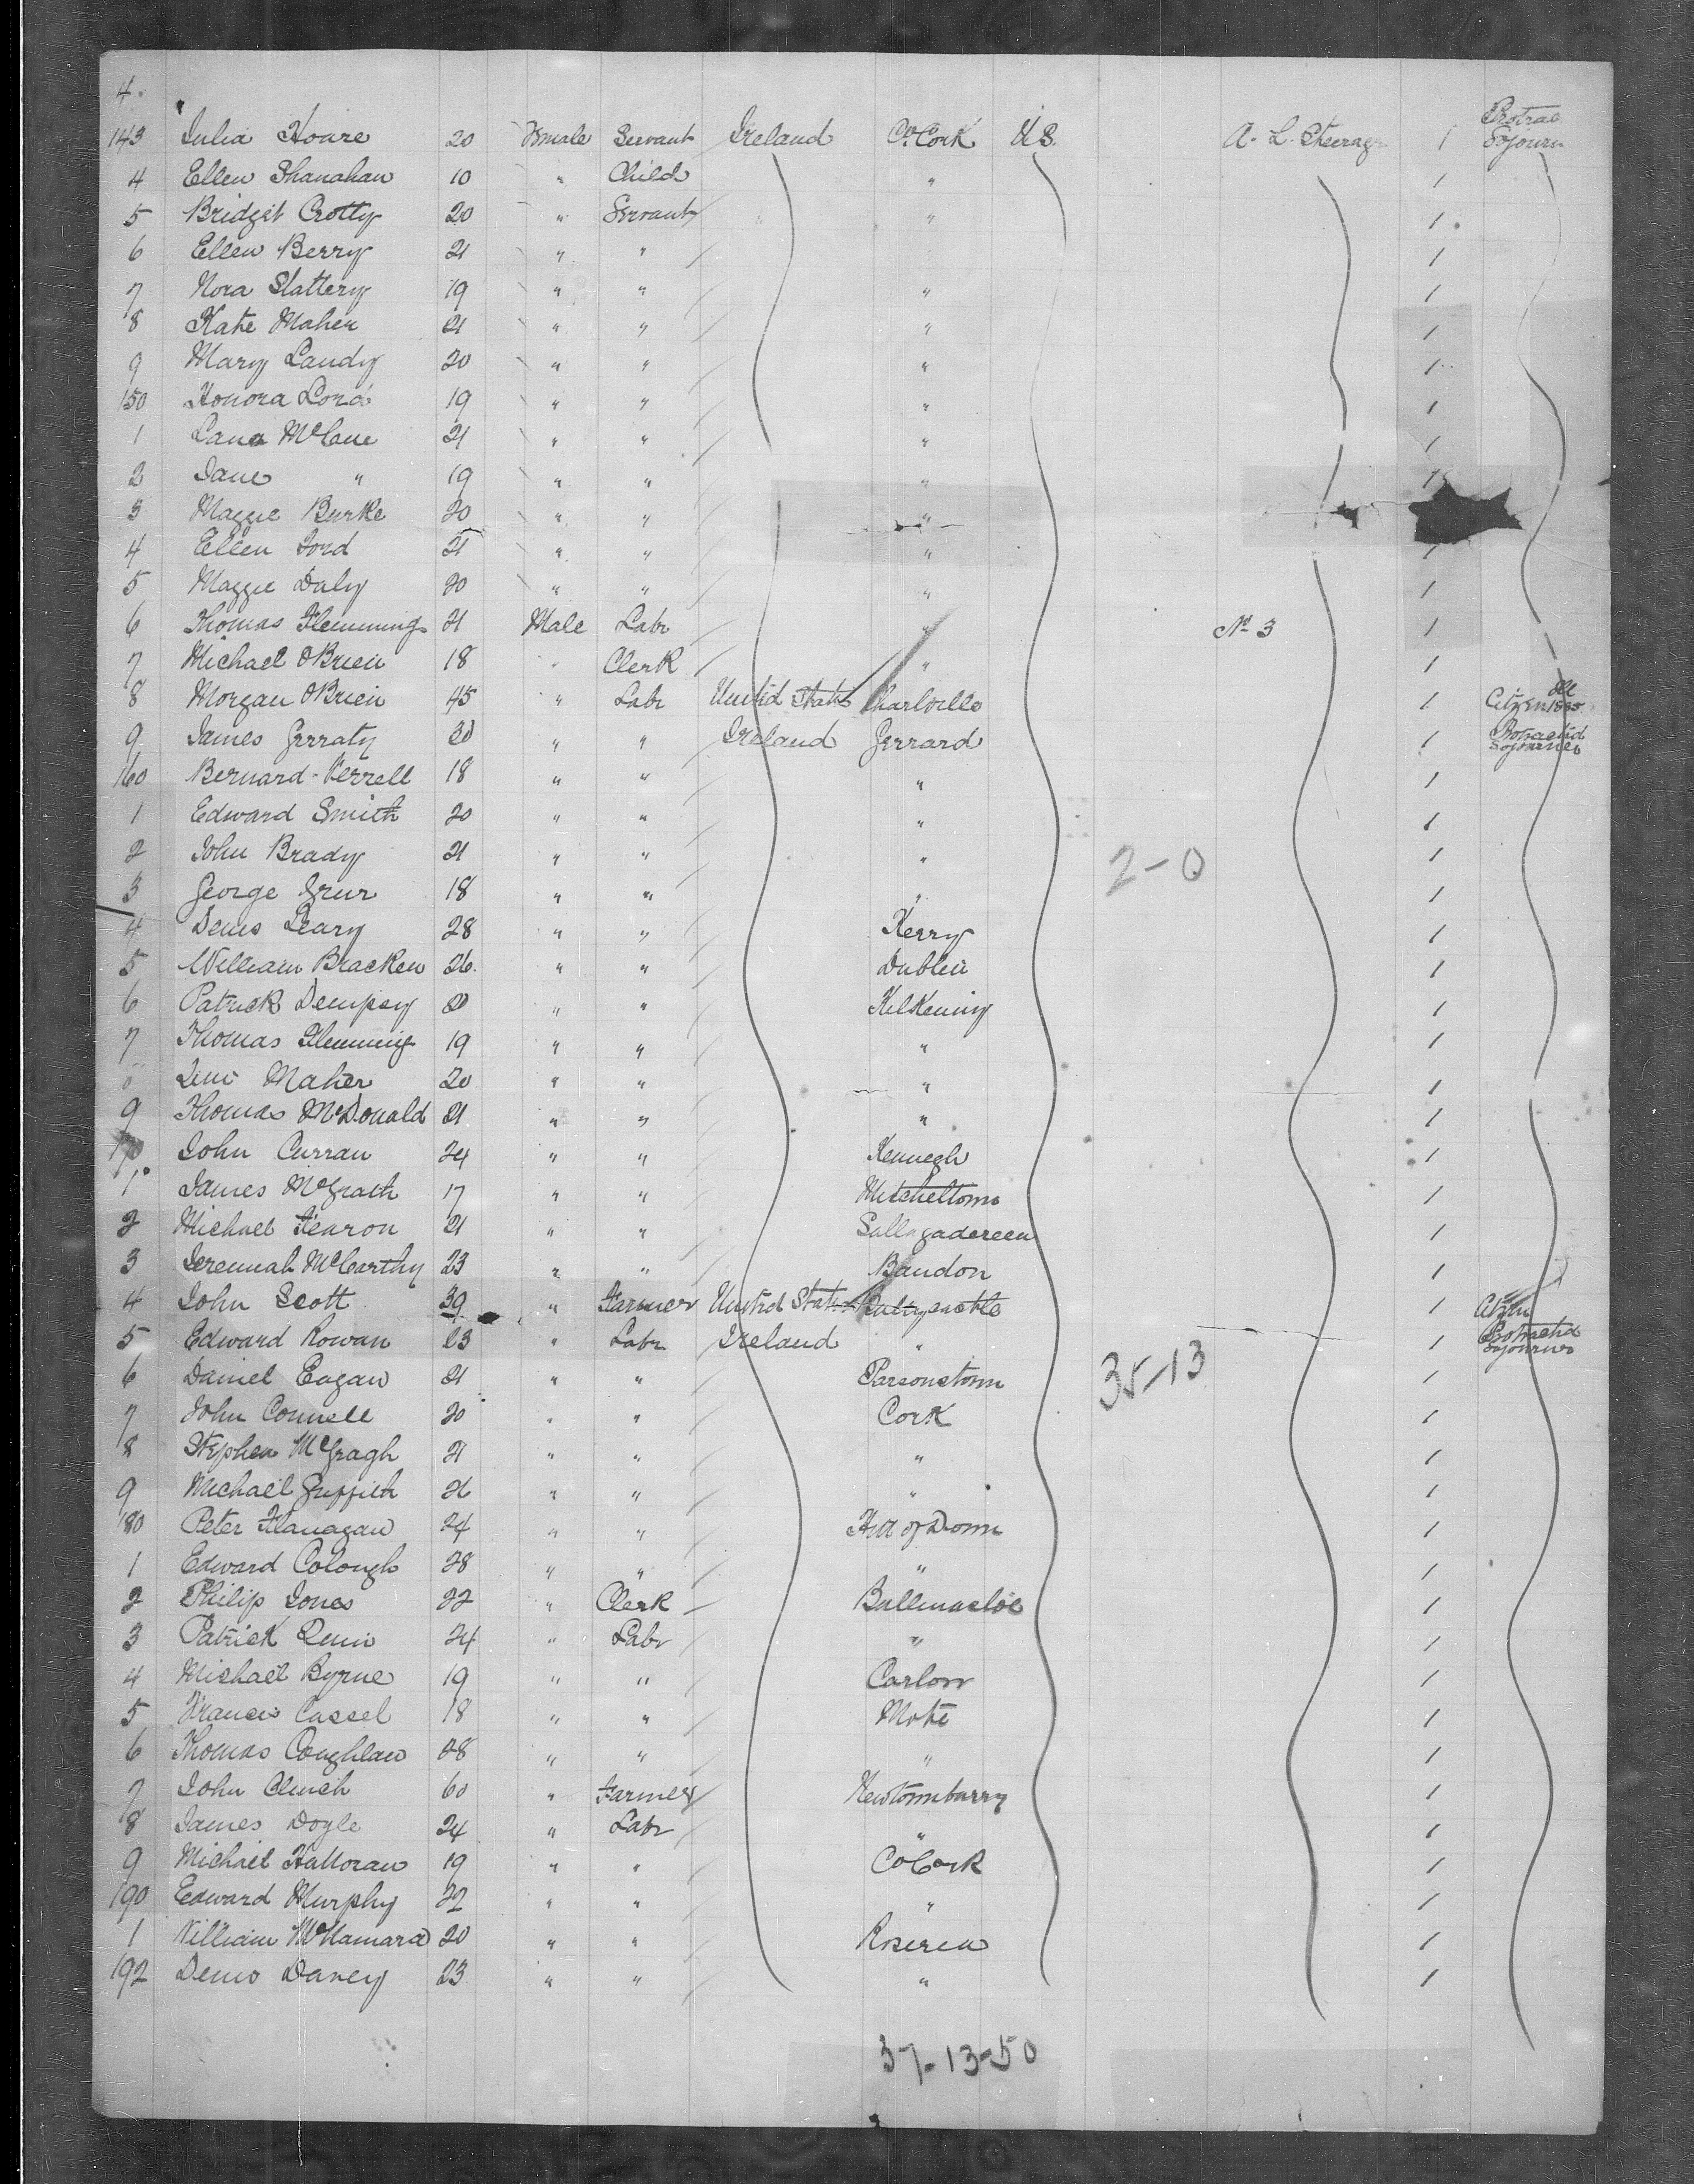 4.
143 Julia Hoare 20 Female Servant Ireland Co. Cork U.S. A. L. Steerage 1 Protrac Sojourn
4 Ellen Shanahan 10 " Child " 1
5 Bridget Crotty 20 " Servant " 1
6 Ellen Berry 21 " " 1
7 Nora Slattery 19 " " " 1
8 Kate Maher 21 " " " 1
9 Mary Landy 20 " " " 1
150 Honora Lord 19 " " " 1
1 Lana McCane 21 " " " 1
2 Jane " 19 " " " 1
3 Maggie Burke 20 " " "
4 Ellen Ford 21 " " " 1
5 Maggie Daly 20 " " " 1
6 Thomas Flemming 21 Male Labr " No 3 1
7 Michael OBrien 18 " Clerk " 1
8 Morgan OBrien 45 " Labr United States Charlville 1 Citizen
9 James Gerraty 20 " " Ireland Gerrard 1 Protracted Sojourner
160 Bernard Verrell 18 " " " 1
1 Edward Smith 20 " " " 1
2 John Brady 21 " " " 1
2-0
3 George 18 " " " 1
4 Denis Leary 28 " " Kerry 1
5 William Bracken 26 " " Dublin 1
6 Patrick Dempsey 20 " " Kilkenny 1
7 Thomas Flemming 19 " " " 1
8 Maher 20 " " " 1
9 Thomas McDonald 21 " " " 1
170 John Curran 24 " " Kennegh 1
1 James McGrath 17 " " Mitcheltown 1
2 Michael Fearon 21 " " 1
3 Jeremiah McCarthy 23 " " Bandon 1
4 John Scott 39 " Farmer United States 1 Citizn
5 Edward Rowan 23 " Labr Ireland " 1 Protracted Sojourner
6 Daniel Eagan 21 " " Parsonstown 1
35-13
7 John Connell 20 " " Cork 1
8 Stephen McGragh 21 " " " 1
9 Michael Griffith 26 " " " 1
180 Peter Flanagan 24 " " Hill of Down 1
1 Edward Colough 28 " " " 1
2 Philip Jones 22 " Clerk Ballinasloe 1
3 Patrick 24 " Labr " 1
4 Michael Byrne 19 " " Carlow 1
5 Francis Cassel 18 " " Mote 1
6 Thomas Coughlan 28 " " " 1
7 John Clinch 60 " Farmer Newtownbarry 1
8 James Doyle 24 " Labr " 1
9 Michael Halloran 19 " " Co Cork 1
190 Edward Murphy 22 " " " 1
1 William McNamara 20 " " Roserea 1
192 Denis Davey 23 " " " 1
37-13-50